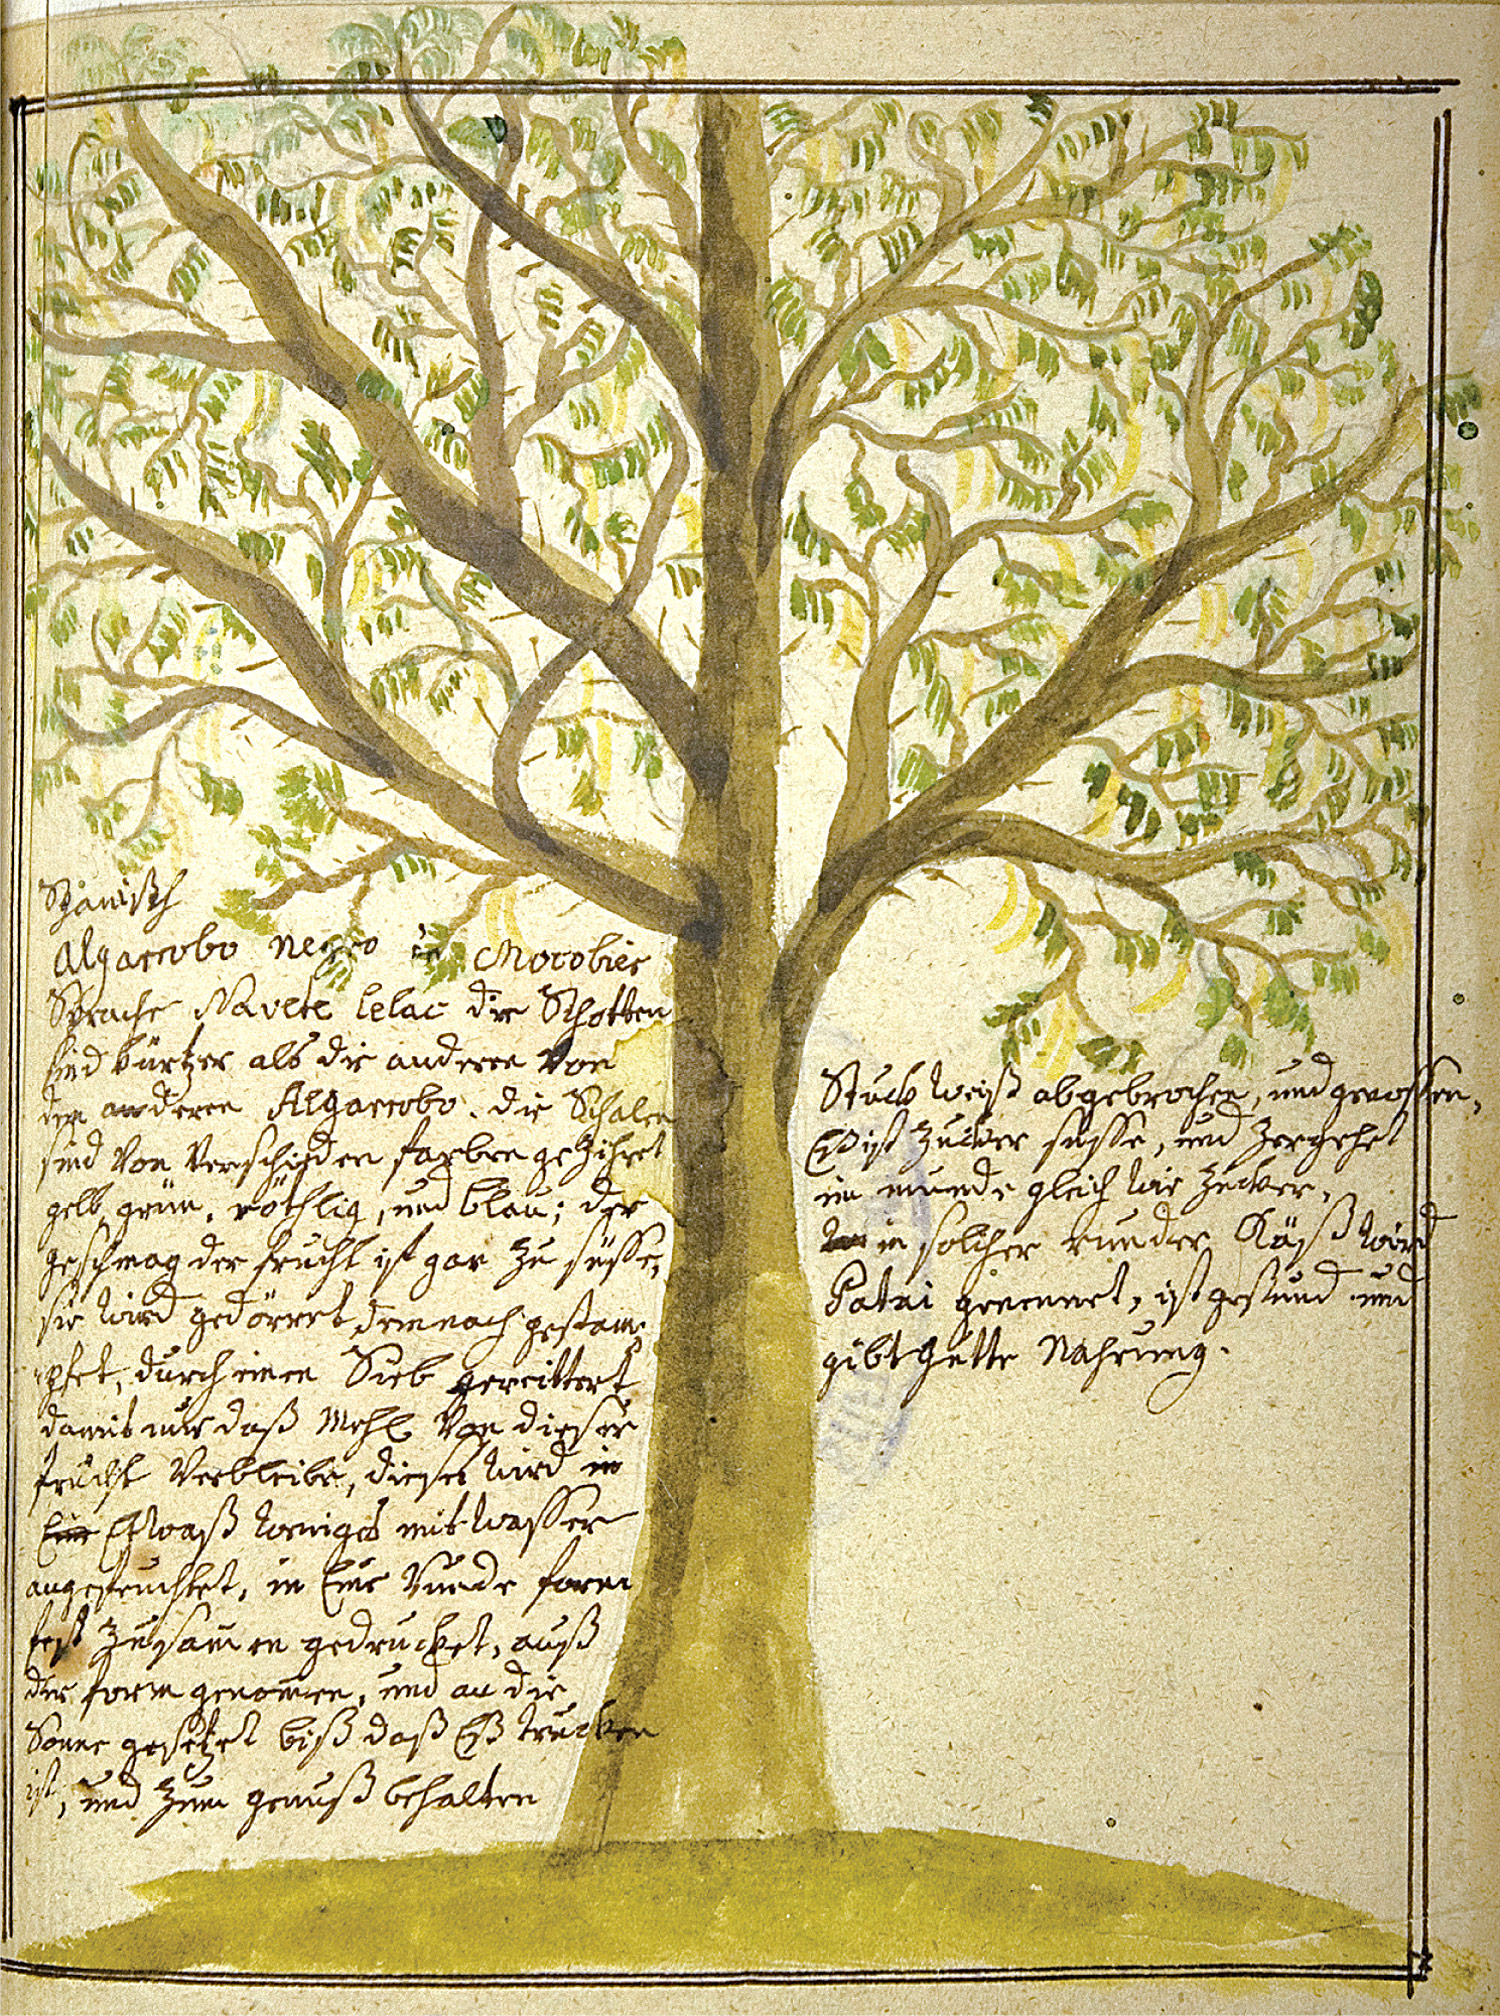 Spanisch
Algarrobo negro in Mocobier
Sprache Navete lelac die Schotten
sind kürtzer als die anderen von
den anderen Algarrobo. die Schalen
sind von verschiden farben geZihret
gelb, grün, röthlig, und blau; der
geschmag der frucht ist gar Zu süsse,
sie wird gedörret, demnach gestam¬
pfet, durch einen Sieb gereittert
damit nur daß Mehl von dieser
frucht verbleibe, dieses wird in
Etwaß weniges mit wasser
angefeuchtet, in Eine runde form
fest Zusamen gedrucket, auß
der form genomen, und an die
Sonne gesetzet biß daß Eß trucken
ist, und Zum genuß behalten
Stuck weiß abgebrochen, und genossen,
Eß ist Zucker süsse, und Zergehet
im munde gleich wie Zucker,
in solcher runder Käß wird
Patai genennet, ist gesund und
gibt gutte Nahrung.